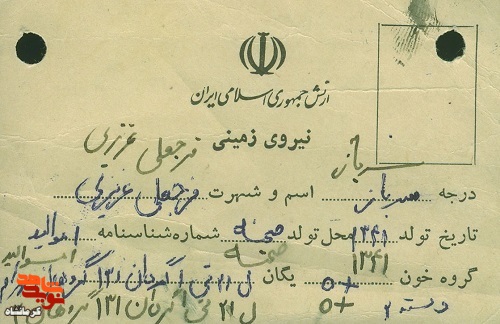 ارتش جمهوری اسلامی ایران
نیروی زمینی
فرجعلی عزیزی
سرباز
درجه سرباز اسم و شهرت فرجعلی عزیزی
تاریخ تولد ۱۳۴۱ محل تولد صحنه شماره شناسنامه
۱۳۴۱ صحنه
گروه خون +o یگان ل ۲۱ تی ۱ گردان ۱۳۱ گروهان
+o ل ۲۱ تی ۱ گردان ۱۳۱ گروهان
دسته ۲
نوید شاهد
کرمانشاه